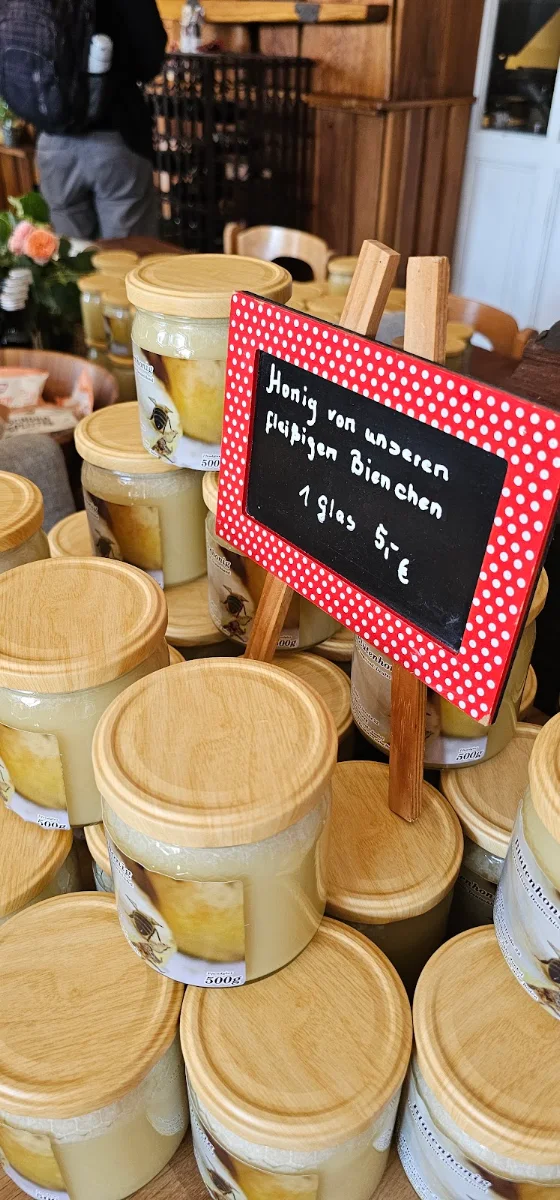 Honig von unseren
fleißigen Bienchen
1 Glas 5,- €
500g
500g
500g
500g
500g